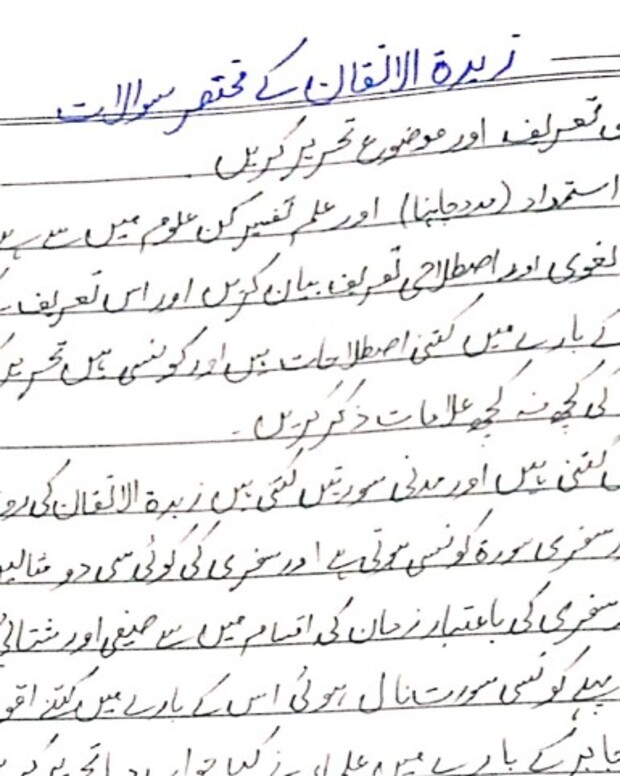 زبدة الاتقان کے مختصر سوالات
تعریف اور موضوع تحریر کریں ۔
استمداد (مدد چاہنا) اور علم تفسیر کن علوم میں سے ہے
لغوی اور اصطلاحی تعریف بیان کریں اور اس تعریف
کے بارے میں کتنی اصطلاحات ہیں اور کونسی ہیں تحریر
کی کچھ نہ کچھ علامات ذکر کریں ۔
کتنی ہیں اور مدنی سورتیں کتنی ہیں زبدة الاتقان کی رو
سفری سورة کونسی ہوتی ہے اور سفری کی کوئی سی دو مثالیں
سفری کی باعتبار زمان کی اقسام میں سے صیفی اور شتائی
پہلے کونسی سورت نال ہوئی اس کے بارے میں کتنے اقو
جابر کے بارے میں